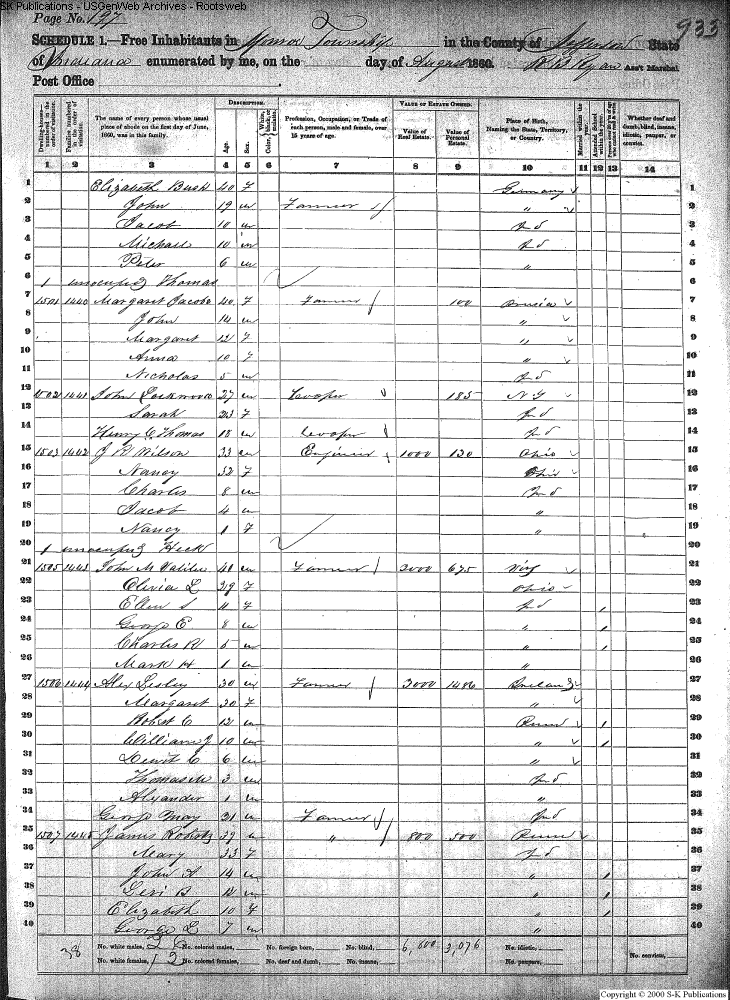 S-K Publications - USGenWeb Archives - Rootsweb
Page No. 197
933
SCHEDULE 1.—Free Inhabitants in Monroe Township in the County of Jefferson State
of Indiana enumerated by me, on the day of August 1860. R W Ryan Ass't Marshal
Post Office
DESCRIPTION. VALUE OF ESTATE OWNED.
Dwelling-houses— numbered in the order of visitation. Families numbered in the order of visitation. The name of every person whose usual place of abode on the first day of June, 1860, was in this family. Age. Sex. Color, White, black, or mulatto. Profession, Occupation, or Trade of each person, male and female, over 15 years of age. Value of Real Estate. Value of Personal Estate. Place of Birth, Naming the State, Territory, or Country. Married within the year. Attended School within the year. Whether deaf and dumb, blind, insane, idiotic, pauper, or convict.
1 2 3 4 5 6 7 8 9 10 11 12 13 14
1 Elizabeth Bush 40 f Germany 1
2 John 19 m Farmer " 2
3 Jacob 10 m Ind 3
4 Michael 10 m Ind 4
5 Peter 6 m " 5
6 1 unoccupied Thomas 6
7 1501 1440 Margaret Jacobs 40 f Farmer 100 Prucia 7
8 John 14 m " 8
9 Margaret 12 f " 9
10 Anna 10 f " 10
11 Nicholas 5 m Ind 11
12 1502 1441 John Lockwood 27 m Cooper 185 N Y 12
13 Sarah 23 f Ind 13
14 Henry C Thomas 18 m Cooper Ind 14
15 1503 1442 J R Wilson 33 m Engineer 1000 130 Ohio 15
16 Nancy 32 f Ohio 16
17 Charles 8 m Ind 17
18 Jacob 4 m " 18
19 Nancy 1 f " 19
20 1 unoccupied Heck 20
21 1505 1443 John M 40 m Farmer 2000 675 Virg 21
22 Olivia L 29 f Ohio 22
23 Ellen S 11 f Ind 23
24 George E 8 m " 24
25 Charles R 5 m " 25
26 Mark H 1 m " 26
27 1506 1444 Alex Lesley 30 m Farmer 3000 1486 Ireland 27
28 Margaret 30 f " 28
29 Robert C 12 m Penn 29
30 William J 10 m " 30
31 Dewit C 6 m " 31
32 Thomas M 3 m Ind 32
33 Alexander 1 m " 33
34 George May 21 m Farmer Ind 34
35 1507 1445 James Roberts 39 m " 800 500 Penn 35
36 Mary 33 f Ind 36
37 John A 14 m " 37
38 Levi B 12 m " 38
39 Elizabeth 10 f " 39
40 George L 7 m " 40
38 No. white males, 26 No. colored males, No. foreign born, No. blind, 6,800 3,076 No. idiotic, No. convicts,
No. white females, 12 No. colored females, No. deaf and dumb, No. insane, No. paupers,
Copyright © 2000 S-K Publications